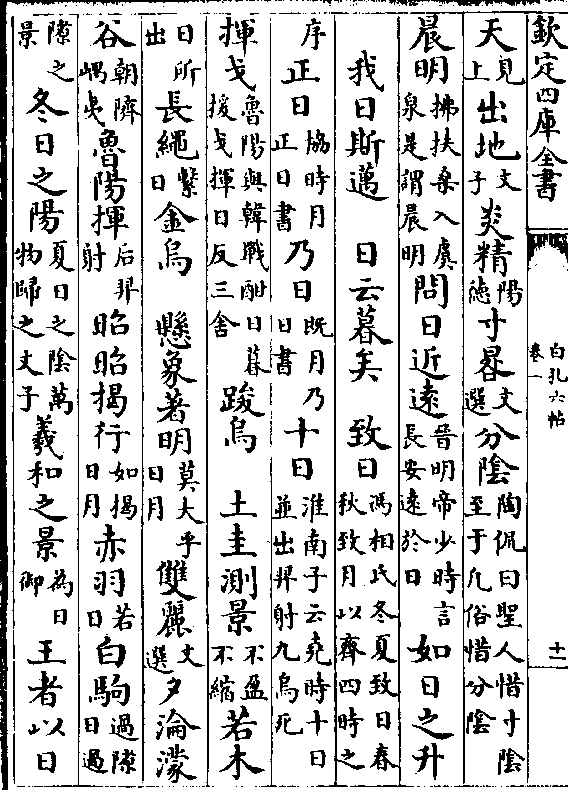 欽定四庫全書 白孔六帖 卷一 十一
天見上出地文子炎精陽德寸晷文選分陰陶侃曰聖人惜寸陰至于凡俗惜分陰
晨明拂扶桑入虞泉是謂晨明問日近遠晉明帝少時言長安遠於日如日之升
我日斯邁 日云暮矣 致日馮相氏冬夏致日春秋致月以齊四時之
序正日協時月正日書乃日既月乃日書十日淮南子云堯時十日並出羿射九烏死
揮戈魯陽與韓戰酣日暮援戈揮日反三舍踆烏 土圭測景不盈不縮若木
日所出長繩繫日金烏 懸象著明莫大乎日月雙麗文選夕淪濛
谷朝隮嵎夷魯陽揮后羿射昭昭揭行如揭日月赤羽若日白駒過隙日過
隙之景冬日之陽夏日之陰萬物歸之文子羲和之景為日御王者以日